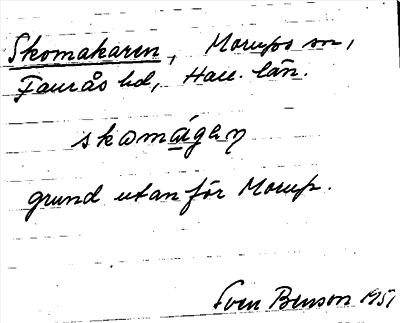 Skomakaren, Morups sn,
Faurås hd, Hall. län.
skomágan
grund utanför Morup.
Sven Benson 1951